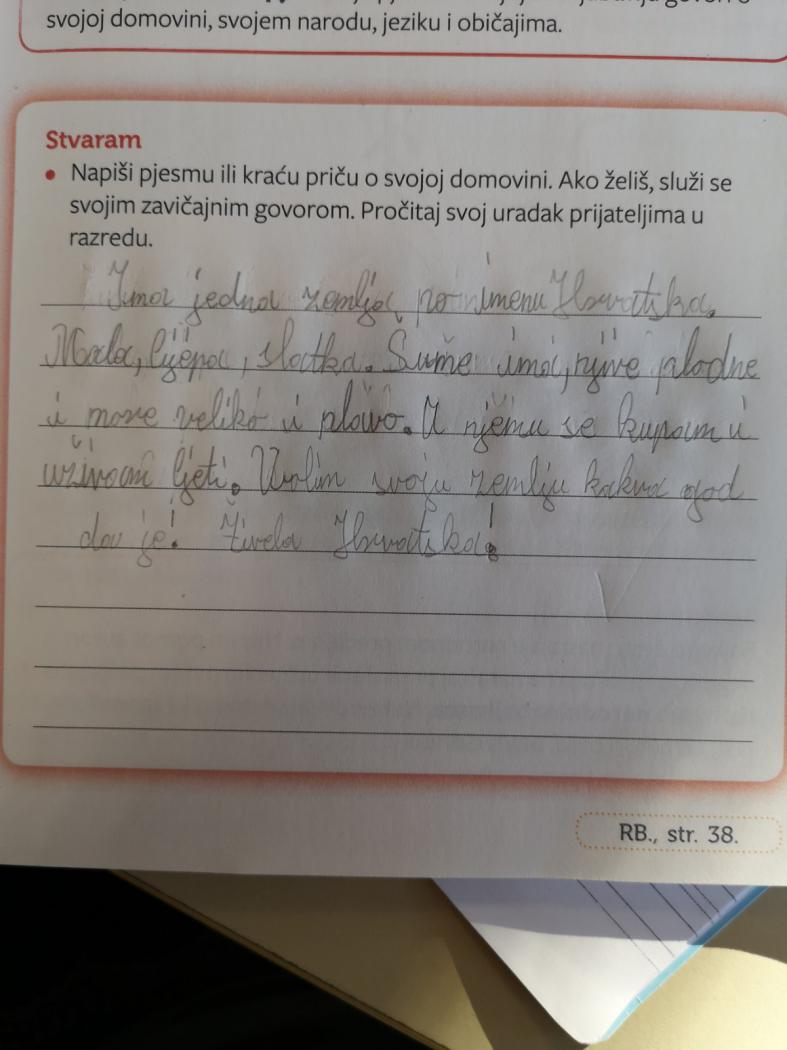 svojoj domovini, svojem narodu, jeziku i običajima.
Stvaram
• Napiši pjesmu ili kraću priču o svojoj domovini. Ako želiš, služi se
svojim zavičajnim govorom. Pročitaj svoj uradak prijateljima u
razredu.
Ima jedna zemlja, po imenu Hrvatska.
Mala, lijepa, slatka. Šume ima, njive plodne
i more veliko i plavo. U njemu se kupam i
uživam ljeti. Volim svoju zemlju kakva god
da je! Živela Hrvatska!
RB., str. 38.